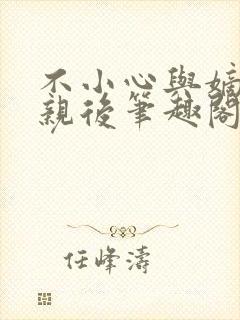 不小心與嫡
親後筆趣閣
任峰濤